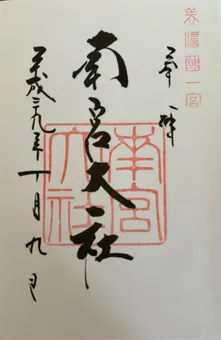 美濃國一宮
奉拝
南宮大社
平成二九年十月九日
南宮
大社